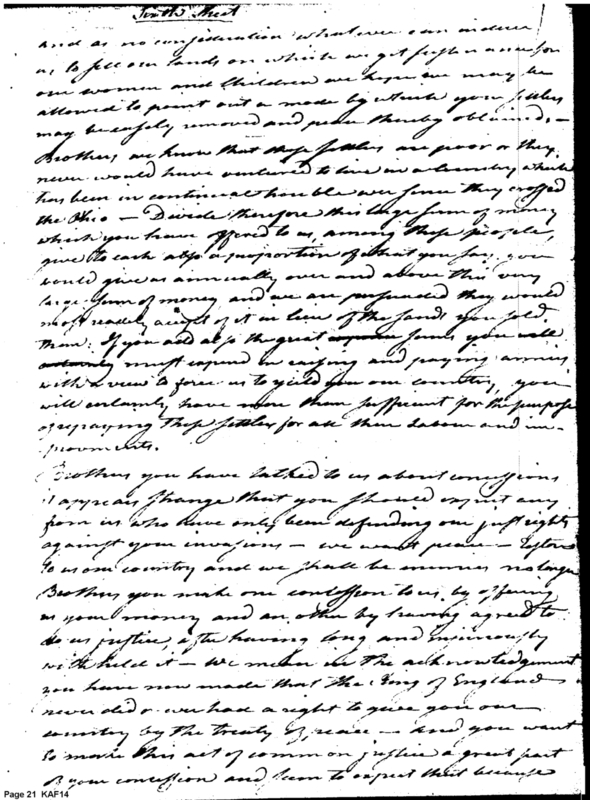 Tenth Sheet
and as no consideration whatever can induce
us to sell our lands on which we get sustenance for
our women and Children we hope we may be
allowed to point out a mode by which your settlers
may be easily removed and peace thereby obtained. —
Brothers, we know that these settlers are poor or they
never would have ventured to live in a Country which
has been in continual trouble ever since they crossed
the Ohio — Divide therefore this large sum of money
which you have offered to us, among these people,
give to each also a proportion of what you say you
would give us annually over and above this very
large sum of money and we are persuaded they would
most readily accept of it in lieu of the lands you sold
them: If you add also the great sums you
must expend in raising and paying armies
with a view to force us to yield you our country, you
will certainly have more than sufficient for the purpose
of repaying these settlers for all their labour and im-
provements.
Brothers you have talked to us about concessions
it appears strange that you should expect any
from us who have only been defending our just rights
against your invasions — we want peace — Restore
to us our country and we shall be enimies no longer
Brothers you make one concession to us, by offering
us your money and an other by having agreed to
do us justice, after having long and injuriously
with held it — we mean in the acknowledgement
you have now made that the King of England
never did or had a right to give you our
country by the treaty of peace — and you want
to make this act of common justice a great part
of your concession and seem to expect that because
Page 21 KAF14